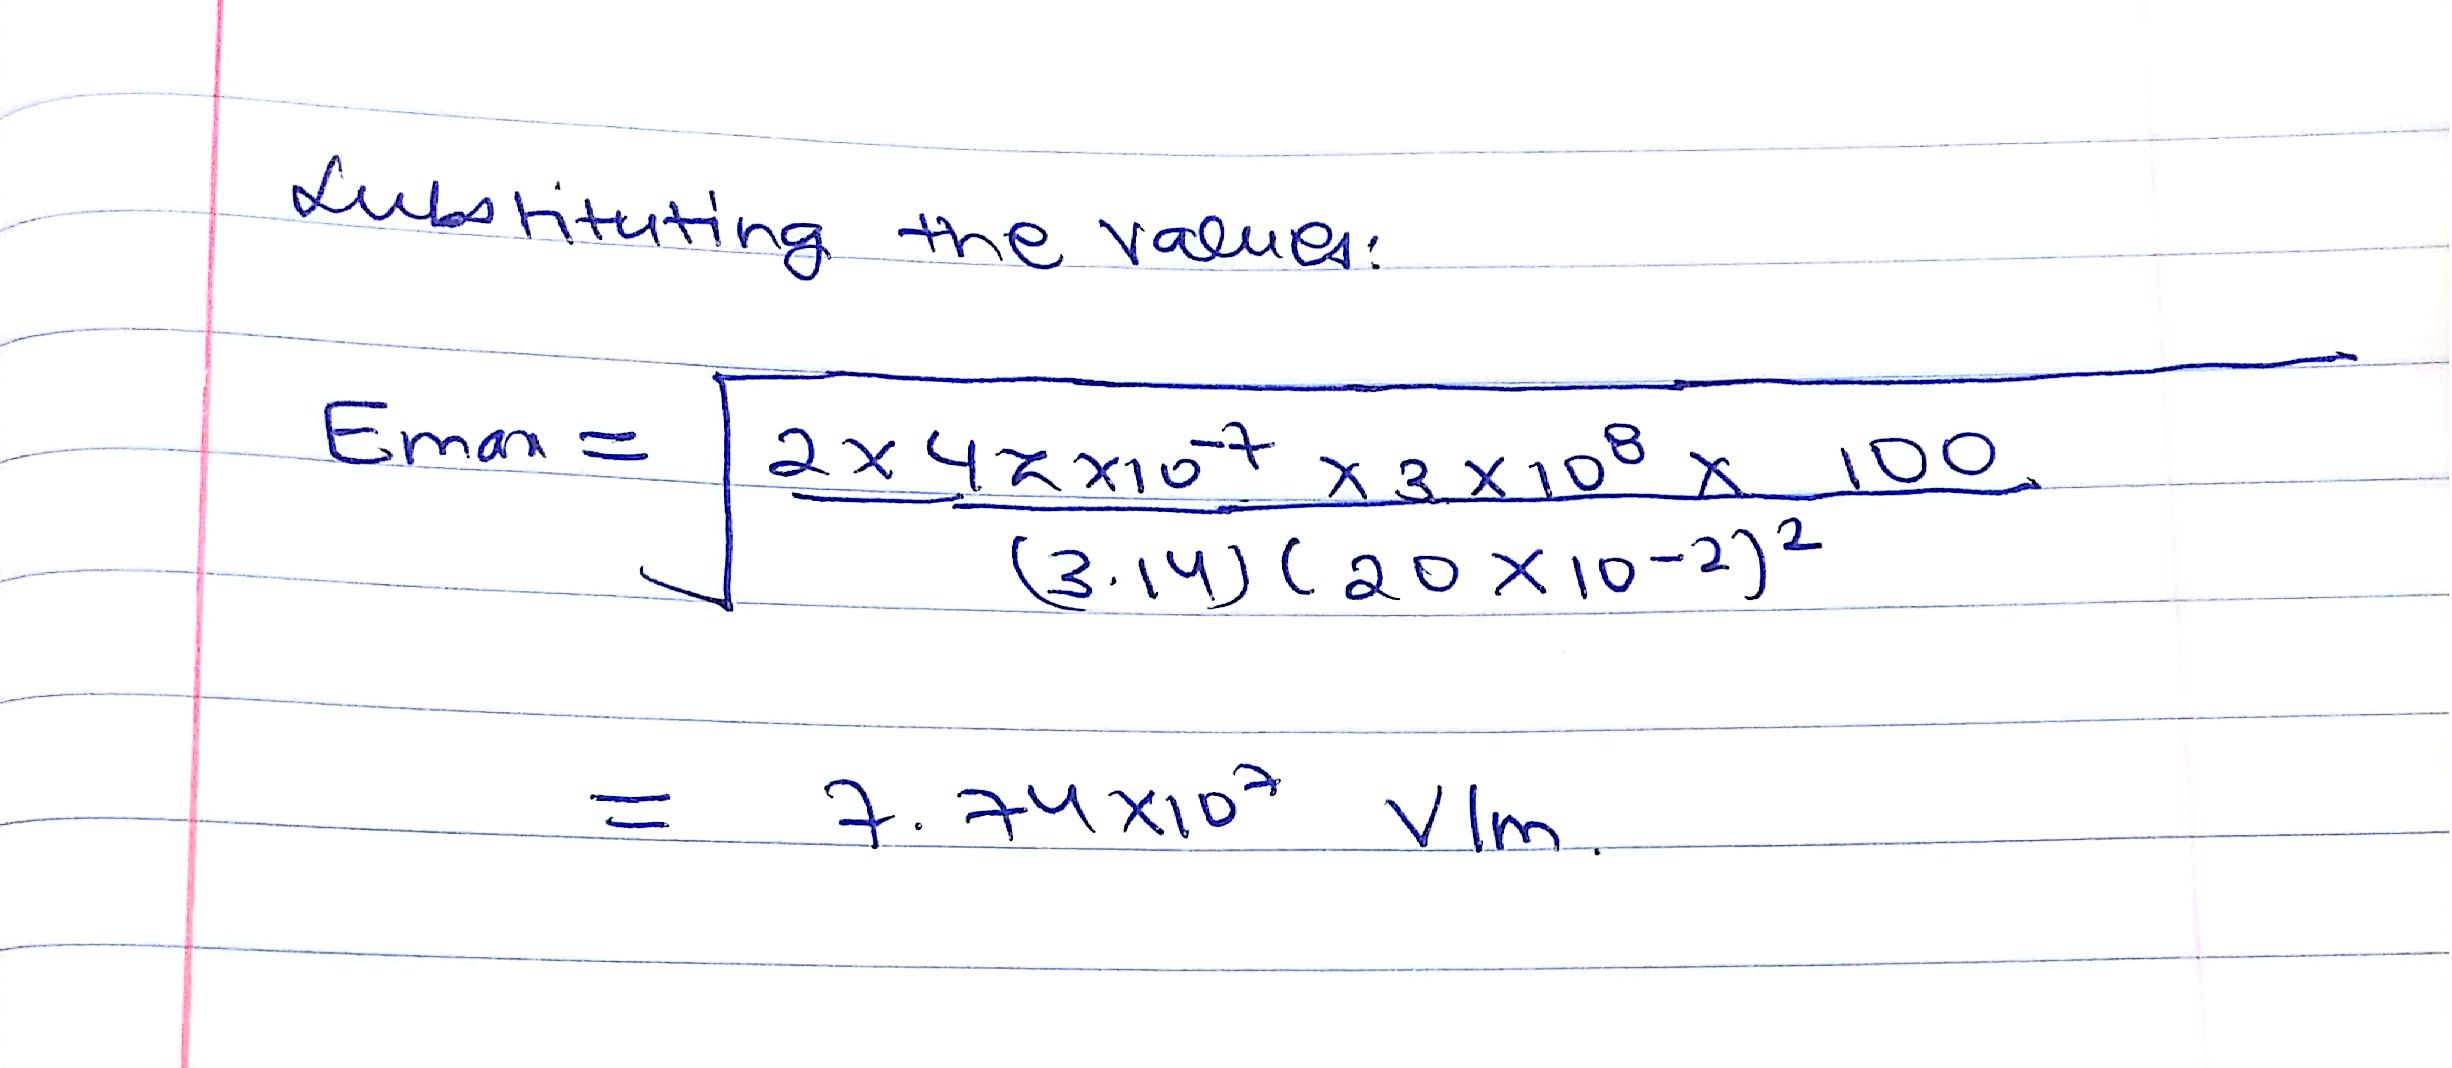 Substituting the values:
Emax = √ 2 x 4π x 10⁻⁷ x 3 x 10⁸ x 100
(3.14) (20 x 10-2)²
= 7.74 x 10⁷ V/m.